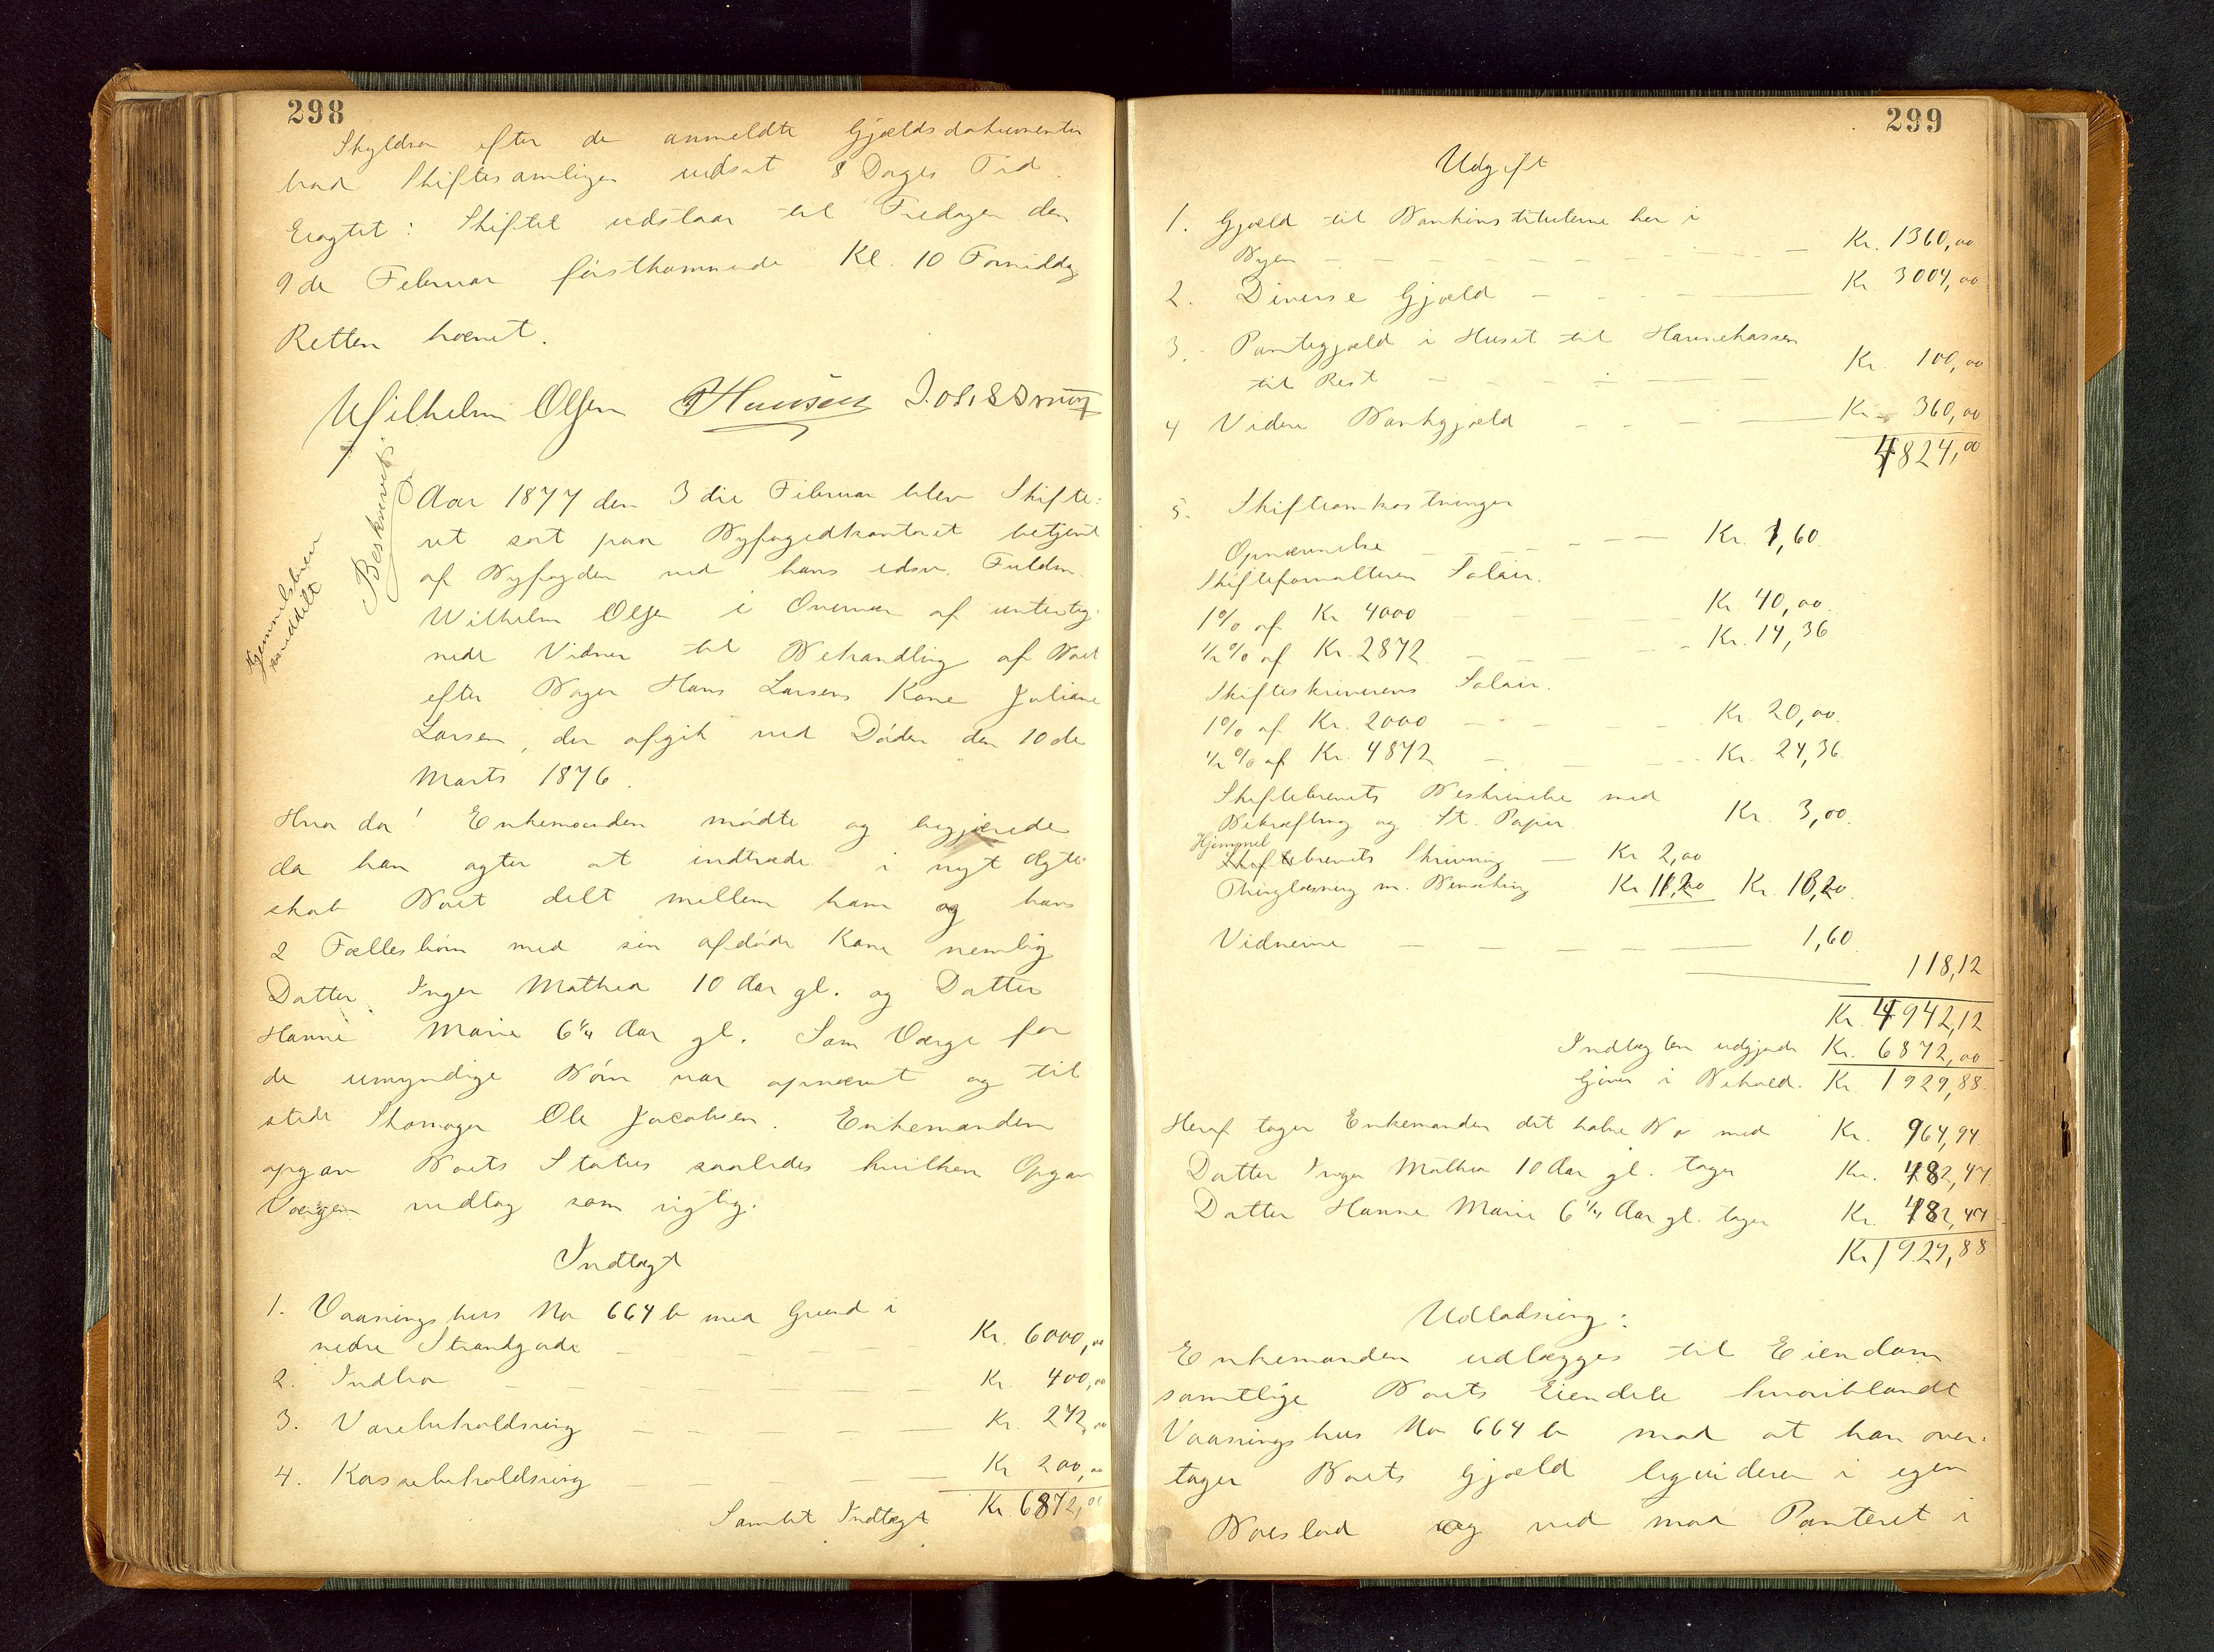 298
Skyldner efter de anmeldte Gjældsdokumenter
bad Skiftesamlingen udsat 8 Dages Tid.
Eragtet: Skiftet udstaar til Fredagen den
9de Februar førstkommende Kl. 10 Formiddag
Retten hævet.
Wilhelm Olsen Hansen
Beskrevet
Hjemmelsbrev
meddelt
Aar 1877 den 3die Februar blev Skifte-
ret sat paa Byfogedkontoret betjent
af Byfogden ved hans edsv. Fuldm.
Wilhelm Olsen i Overvær af underteg-
nede Vidner til Behandling af Boet
efter Bager Hans Larsens Kone Juliane
Larsen, der afgik ved Døden den 10de
Marts 1876.
Hvor da! Enkemanden mødte og begjærede
da han agter at indtræde i nyt Ægte-
skab Boet delt mellem ham og hans
2 Fællesbørn med sin afdøde Kone nemlig
Datter Inger Mathea 10 Aar gl. og Datter
Hanne Marie 6 1/4 Aar gl. Som Værge for
de umyndige Børn var opnævnt og til
stede Skomager Ole Jacobsen. Enkemanden
opgav Boets Status saaledes hvilken Opgav
Værgen vedtog som rigtig.
Indtægt
1. Vaaningshus No 664 b med Grund i
nedre Strandgade Kr. 6000,00
2. Indbo Kr. 400,00
3. Varebeholdning Kr. 272,00
4. Kassebeholdning Kr 200,00
Samlet Indtægt Kr. 6872,00
299
Udgift
1. Gjæld til Bankinstituterne her i
Byen Kr. 1360,00
2. Diverse Gjæld Kr. 3004,00
3. Pantegjæld i Huset til Havnekassen
til Rest Kr. 100,00
4 Videre Bankgjæld Kr. 360,00
4824,00
5. Skifteomkostninger
Opnævnelse Kr. 1,60
Skifteforvalteren Salair.
1% af Kr. 4000 Kr 40,00.
1/2 % af Kr. 2872 Kr. 14,36
Skifteskriverens Salair.
1% af Kr. 2000 Kr. 20,00.
1/2 % af Kr. 4872 Kr. 24,36.
Skiftebrevets Beskrivelse med
Bekræftning og St. Papir Kr. 3,00.
Hjemmel
Skiftebrevets Skrivning Kr 2,00
Thinglæsning m. Bemærkning Kr 11,20 Kr. 13,20.
Vidnerne 1,60.
118,12
Kr. 4942,12
Indtægten udgjorde Kr. 6872,00
Giver i Behold. Kr. 1929,88.
Heraf tager Enkemanden det halve Bo med Kr. 964,94.
Datter Inger Mathea 10 Aar gl. tager Kr. 482,47.
Datter Hanne Marie 6 1/4 Aar gl. tager Kr. 482,47
Kr 1929,88
Udlodning:
Enkemanden udlægges til Eiendom
samtlige Boets Eiendele hvoriblandt
Vaaningshus No 664 b mod at han over-
tager Boets Gjæld ligvideren i egen
Boeslod og ved mod Panteret i